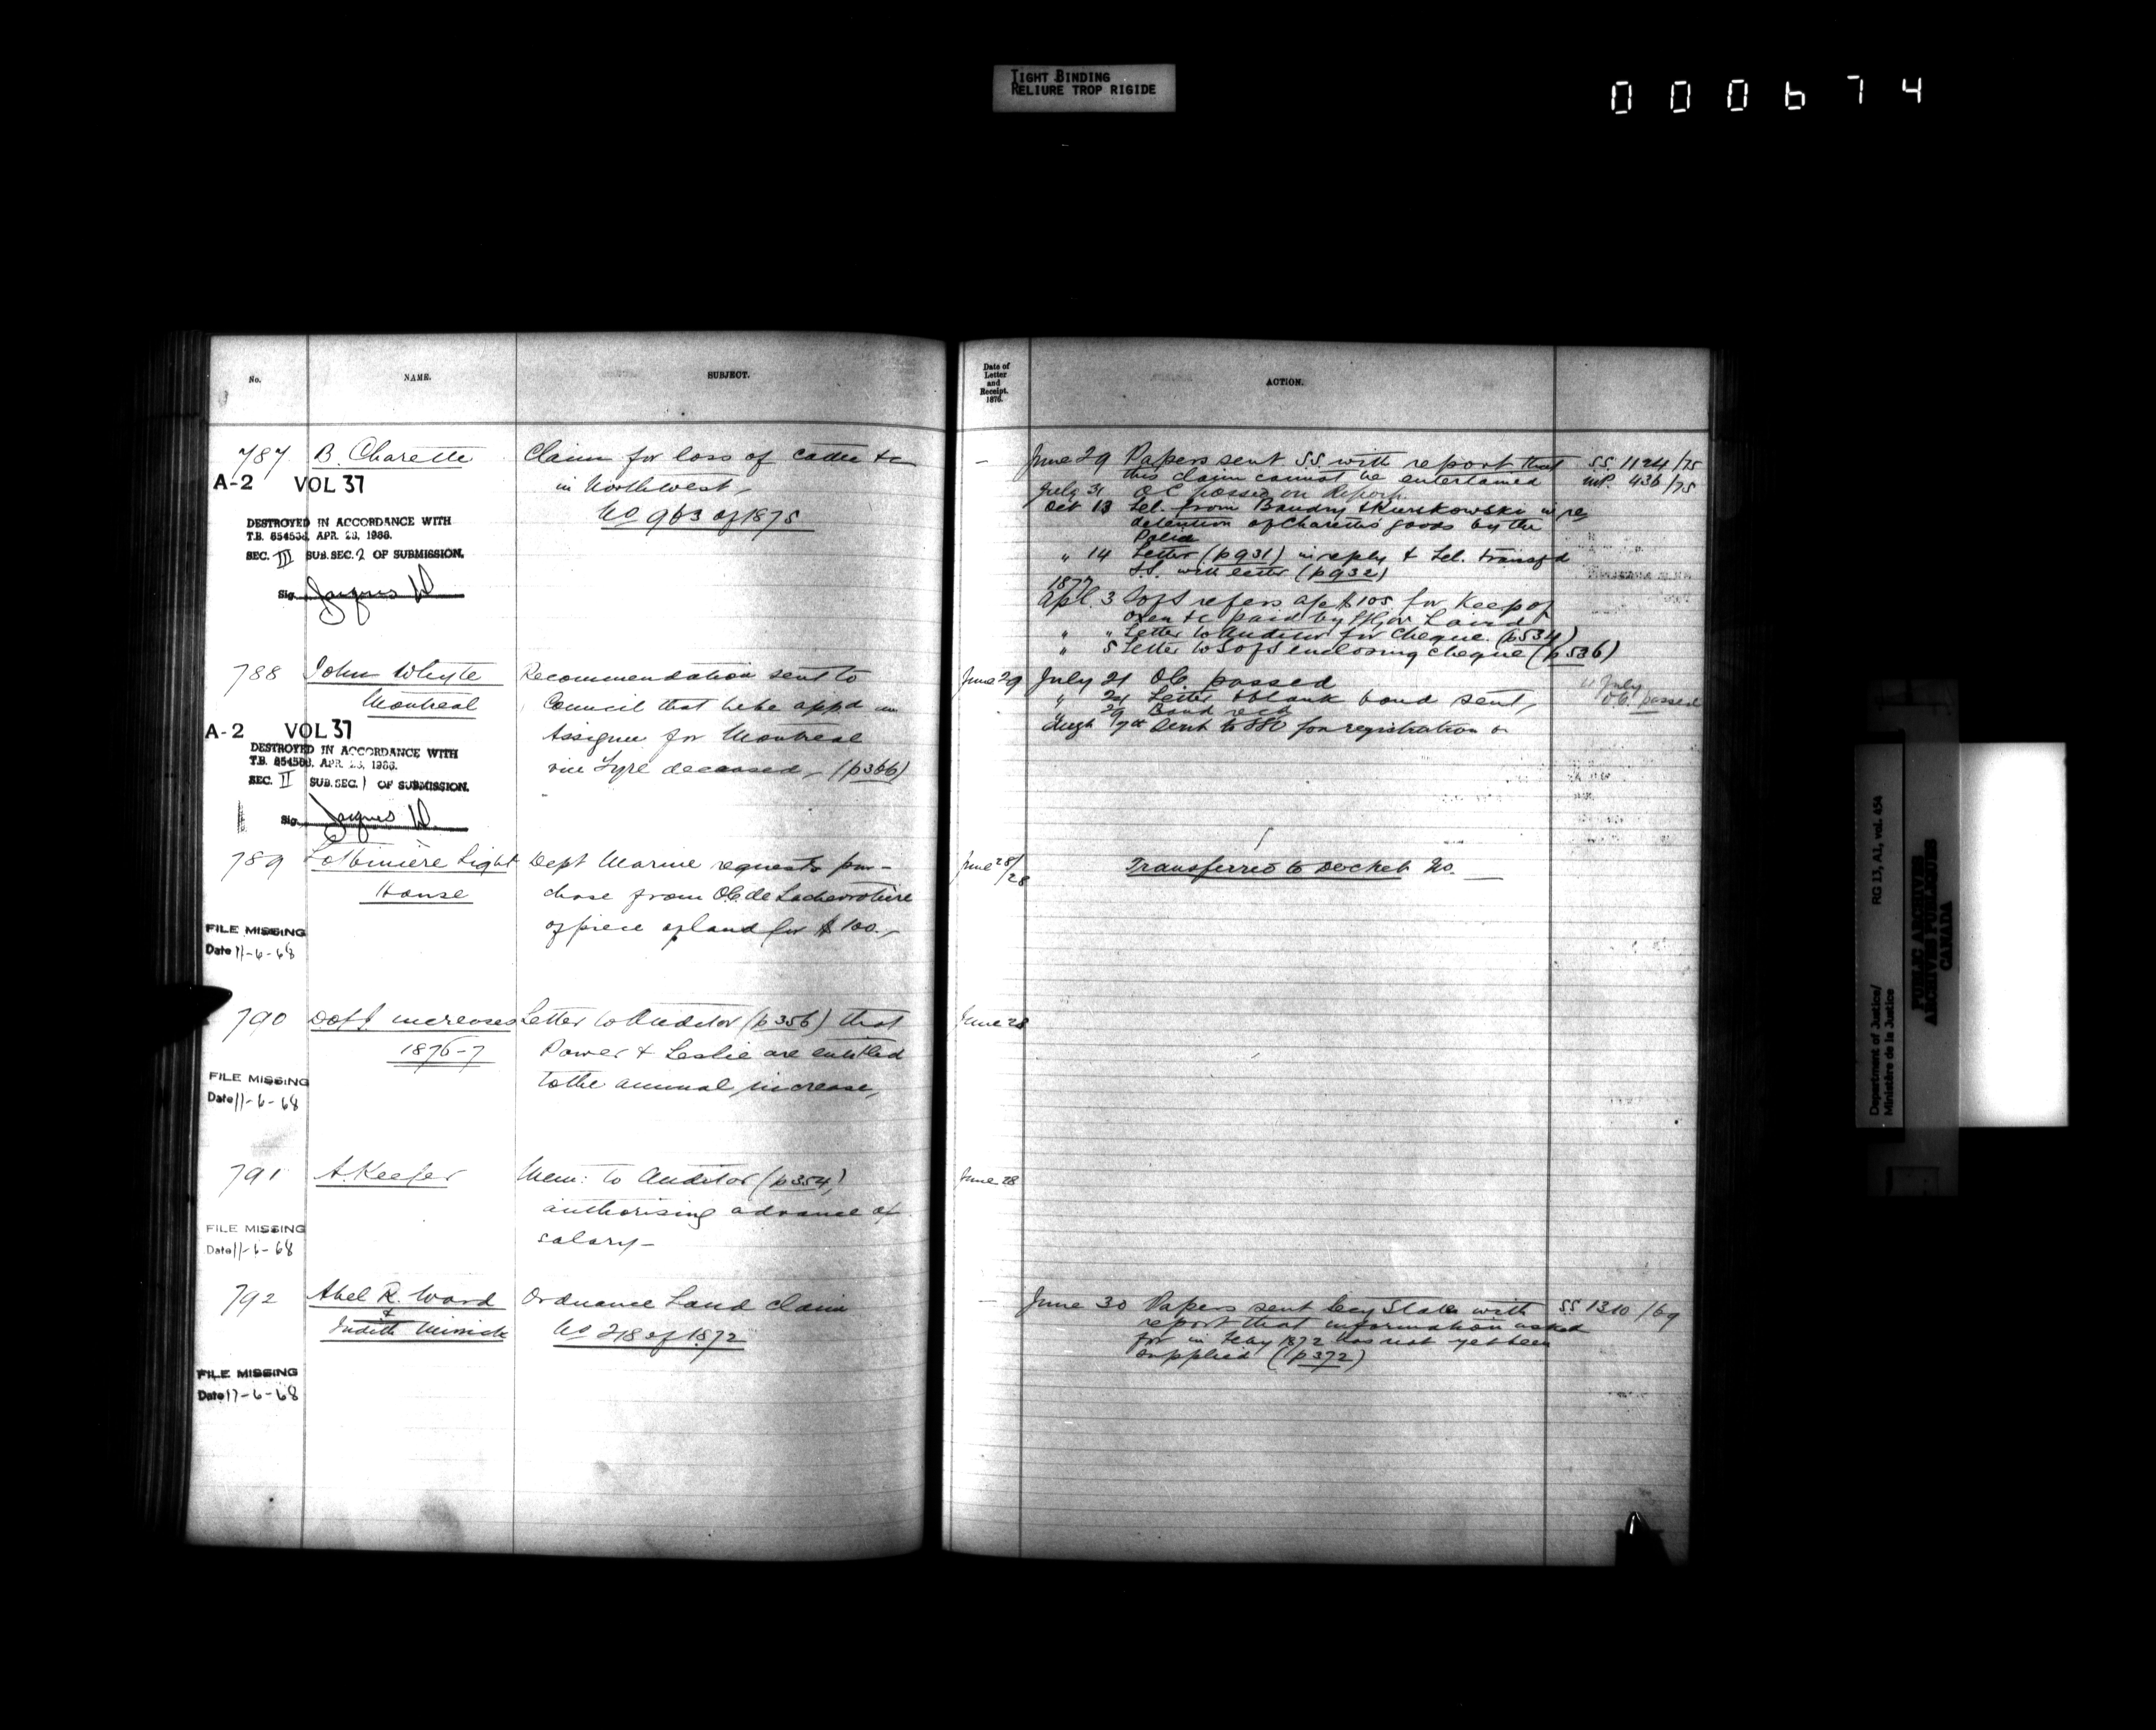 TIGHT BINDING
RELIURE TROP RIGIDE
000674
No. NAME. SUBJECT.
787 B. Charette Claim for loss of cattle &c
A-2 VOL 37 in Northwest,
No 963 of 1875
DESTROYED IN ACCORDANCE WITH
T.B. 854536, APR. 28, 1966.
SEC. III SUB.SEC. 2 OF SUBMISSION.
Sig. Jacques
788 John Whyte Recommendation sent to
Montreal Council that he be appd an
A-2 VOL 37 Assignee for Montreal
DESTROYED IN ACCORDANCE WITH
T.B. 854536, APR. 28, 1966. vice Fyfe deceased, (p366)
SEC. II SUB.SEC. 1 OF SUBMISSION.
Sig. Jacques
789 Lotbinière Light Dept Marine requests pur-
House chase from O.C. de Lachevrotière
FILE MISSING of piece of land for $100,
Date 11-6-68
790 Dept. increases Letter to Auditor (p356) that
1876-7 Power & Leslie are entitled
FILE MISSING to the annual increase,
Date 11-6-68
791 A. Keefer Mem: to Auditor (p354)
authorising advance of
FILE MISSING salary-
Date 11-6-68
792 Abel R. Ward Ordnance Land claim
&
Judith No 218 of 1872
FILE MISSING
Date 17-6-68
Date of
Letter
and
Receipt.
1876.
ACTION.
- June 29 Papers sent SS. with report that SS. 1124/75
this claim cannot be entertained 436/75
July 31 O.C. passed on Report.
Oct 13 Tel. from Baudry in re
detention of Charette's goods by the
Police
" 14 Letter (p931) in reply & Tel. transfd
S.S. with letter (p932)
1877
Apl. 3 refers a/c $105 for keep of
oxen &c paid by Govr Laird
" " Letter to Auditor for cheque. (p534)
" 5 Letter to enclosing cheque (p536)
June 29 July 21 O.C. passed 21 July
O.C. passed
" 24 Letter & blank bond sent,
" 29 Bond recd
Augt 7th Sent to for registration
June 28/28 Transferred to Docket No. __
June 28
June 28
- June 30 Papers sent Secy State with SS 1310/69
report that information asked
for in Feby 1872 has not yet been
supplied (p372)
Department of Justice/ RG 13, A1, vol. 454
Ministère de la Justice
PUBLIC ARCHIVES
ARCHIVES PUBLIQUES
CANADA